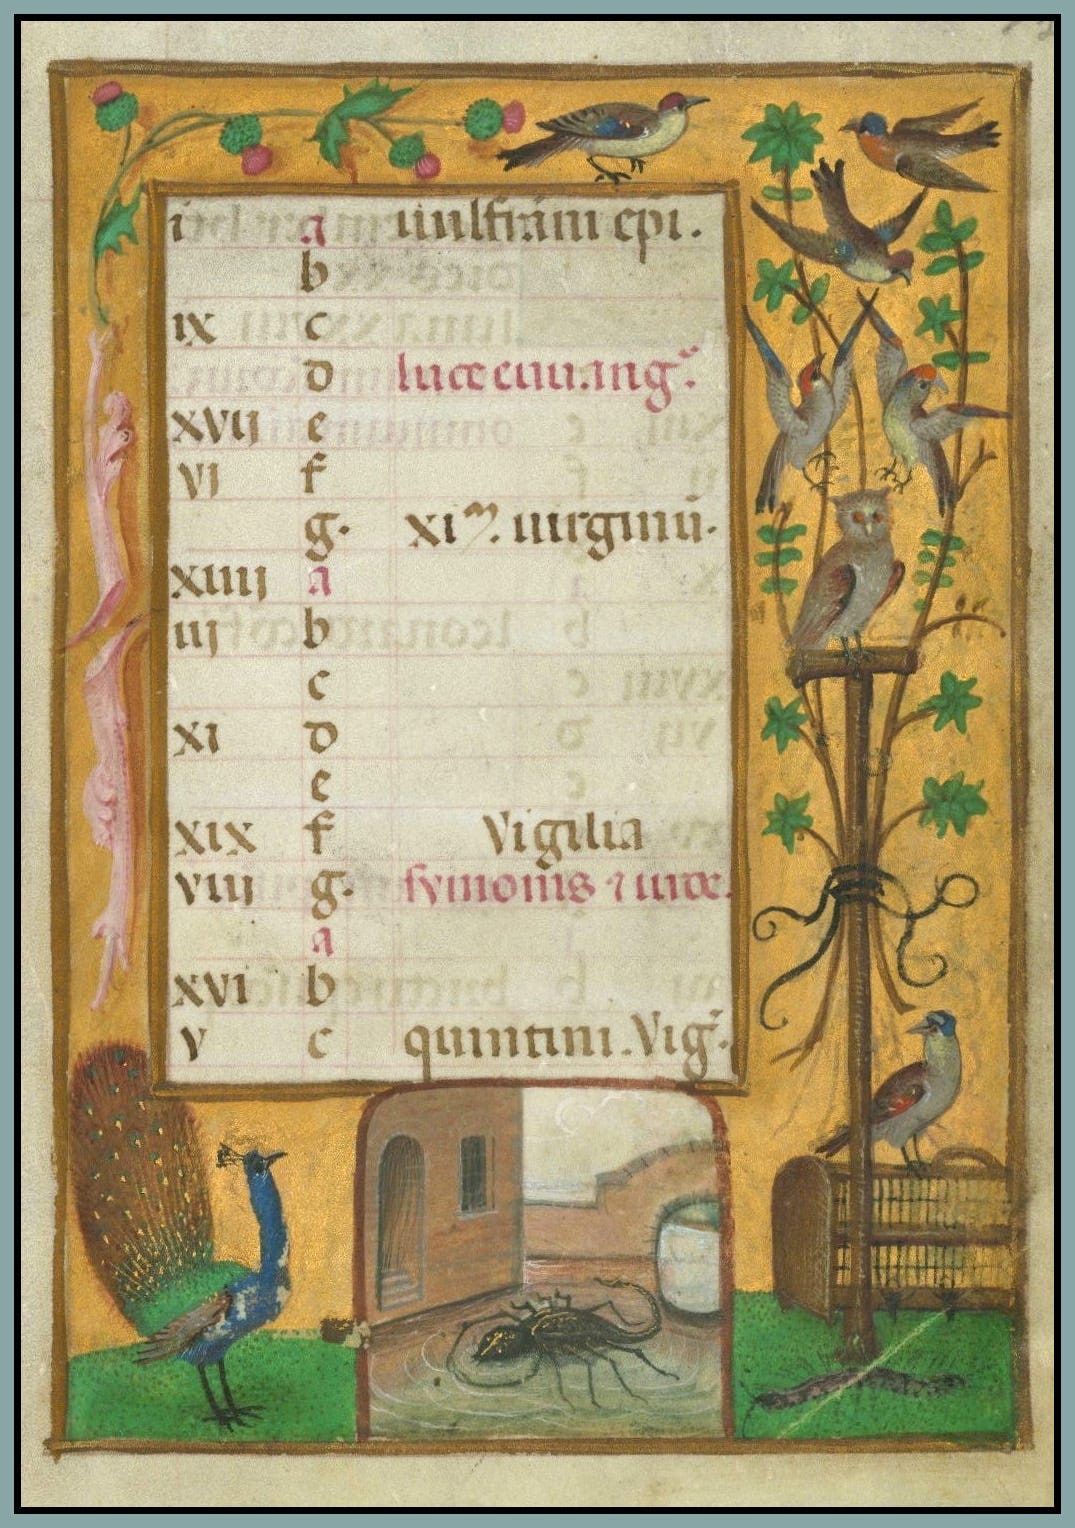 i a uulfrāni epī.
b
ix c
d luce euuāng̃.
xvij e
vj f
g. xiᵐ. uirginū.
xiiij a
iij b
c
xi d
e
xix f Vigilia
viij g. symonis ⁊ iude.
a
xvi b
v c quintini. Vig̃.